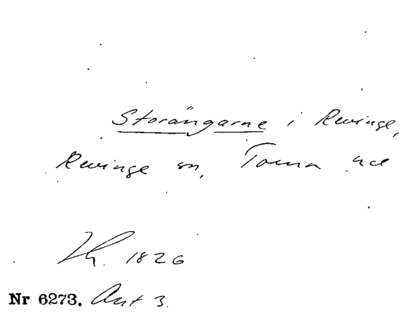 Storängarne i Revinge,
Revinge sn, Torna hd
1826
Nr 6273. Ant 3.